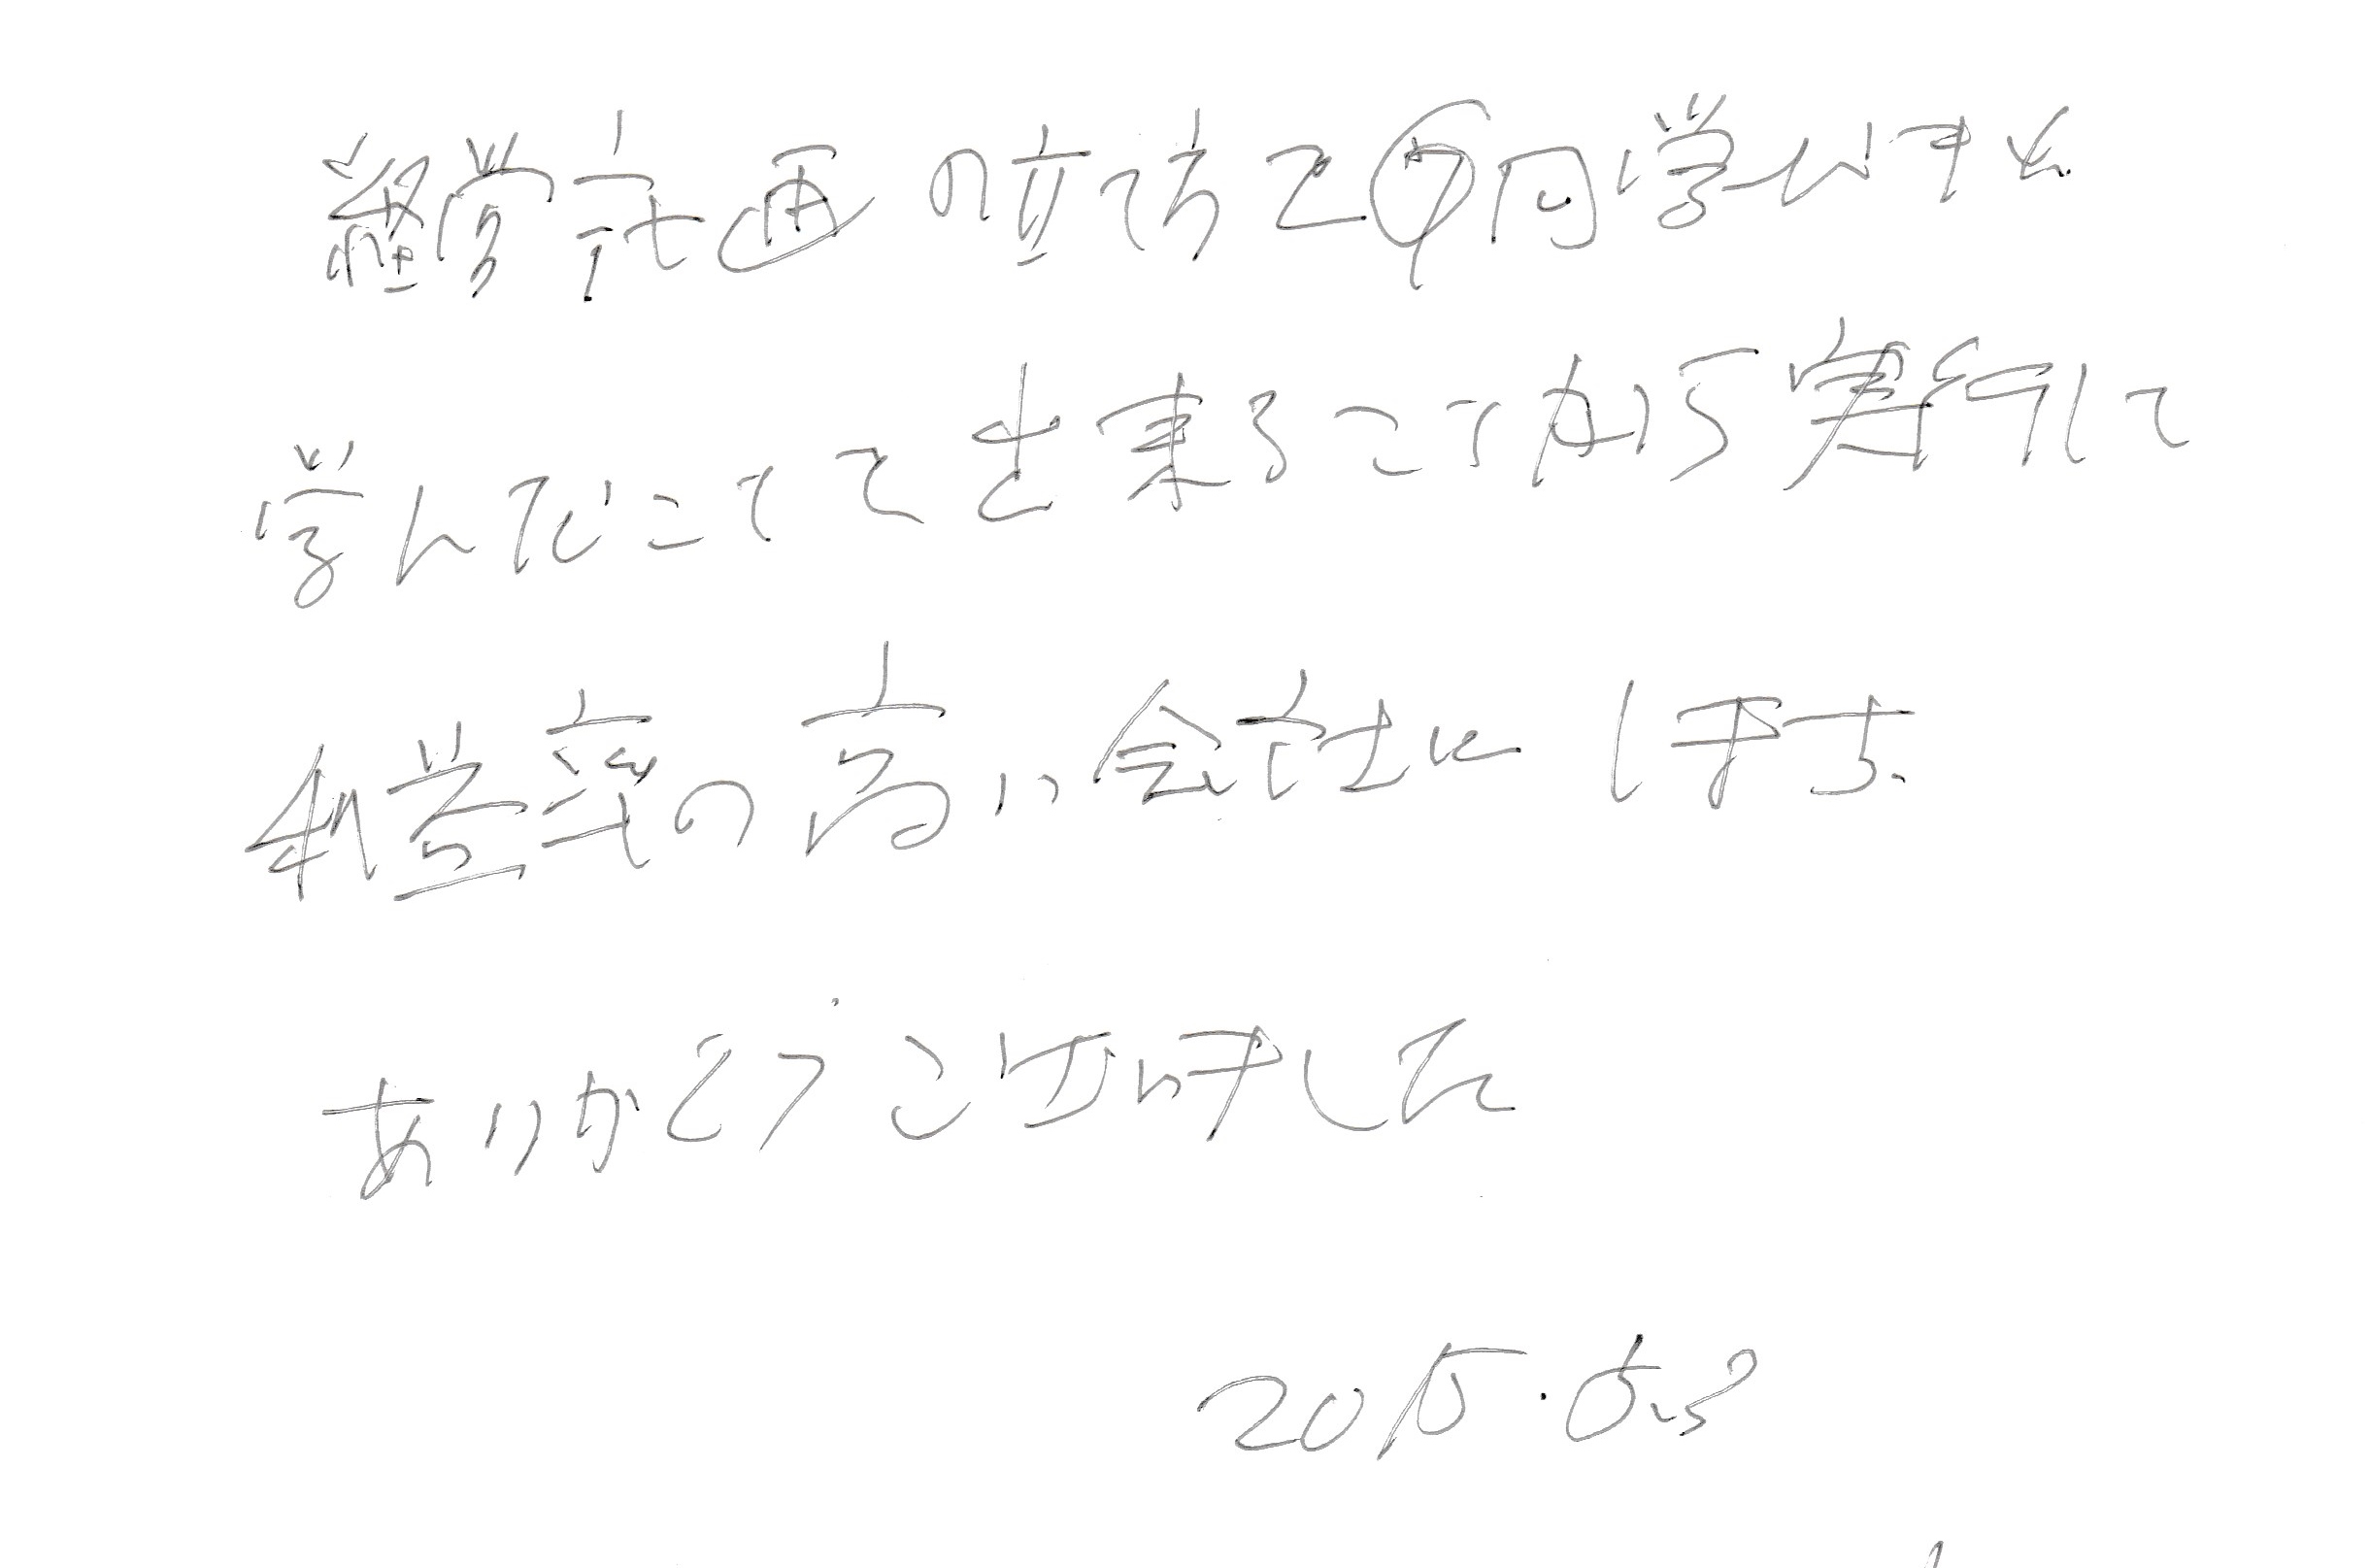 経営計画の立て方で中内学びました
学んだことで出来ることから実行して
利益率の高い会社にします。
ありがとうございました
2015.5.8